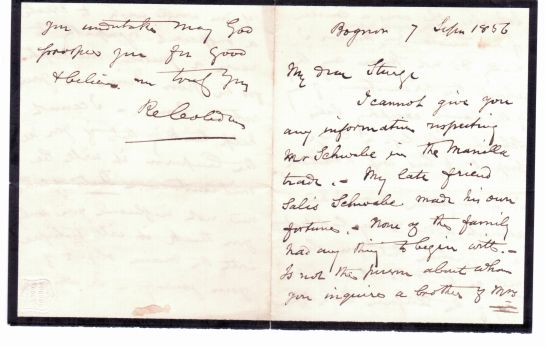 Bognor 7 Sepr 1856
My dear Sturge
I cannot give you
any information respecting
Mr Schwabe in the Manilla
trade. - My late friend
Salis Schwabe made his own
fortune. - None of the family
had any thing to begin with. -
Is not the person about whom
you inquire a brother of Mrs
you undertake may God
prosper you for good
& believe me truly yrs
R Cobden